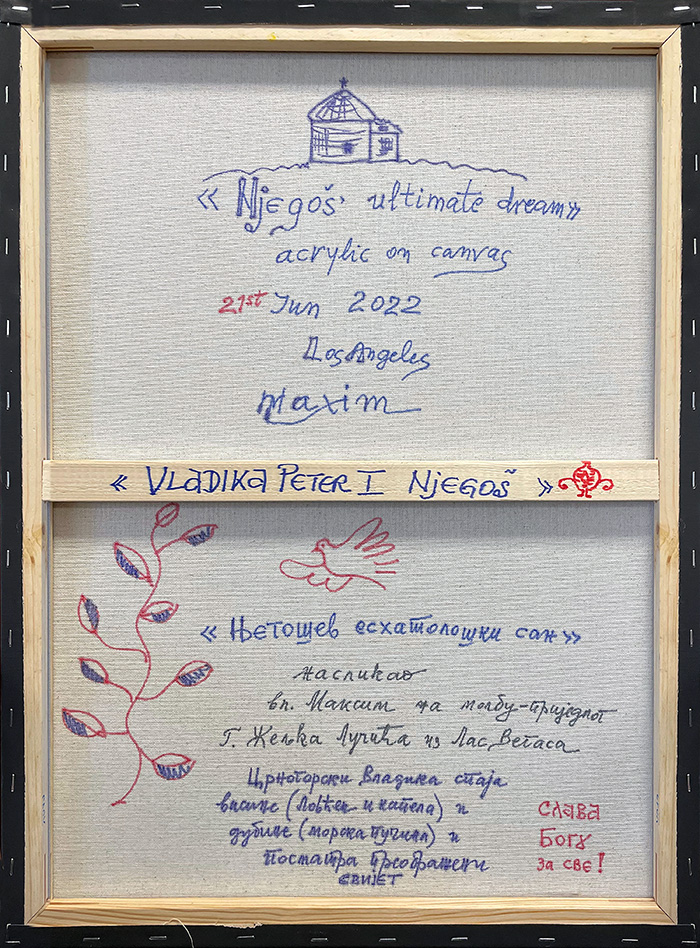 « Njegoš' ultimate dream»
acrylic on canvas
21st Jun 2022
Los Angeles
maxim
« VLADIKA PETER I NJEGOŠ »
« Његошев есхатолошки сан »
насликао
еп. Максим на молбу-приједлог
Г. Жељка Лучића из Лас Вегаса
Црногорски Владика спаја
висине (Ловћен и капела) и
дубине (морска пучина) и
посматра преображени
свијет
Слава
Богу
за све!